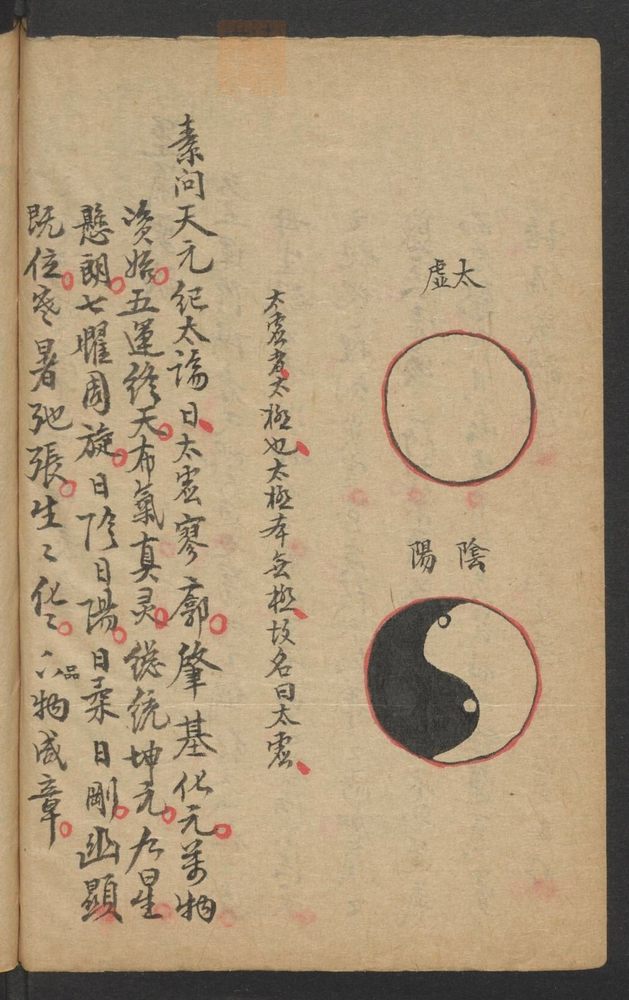 太虛
陰陽
太虛者太極也太極本無極故名曰太虛
素問天元纪太論曰太虛寥廓肇基化元萬物
資始五運終天布氣真灵總統坤元九星
懸朗七曜周旋曰阴曰陽曰柔曰剛幽顯
既位寒暑弛張生〻化〻品物咸章